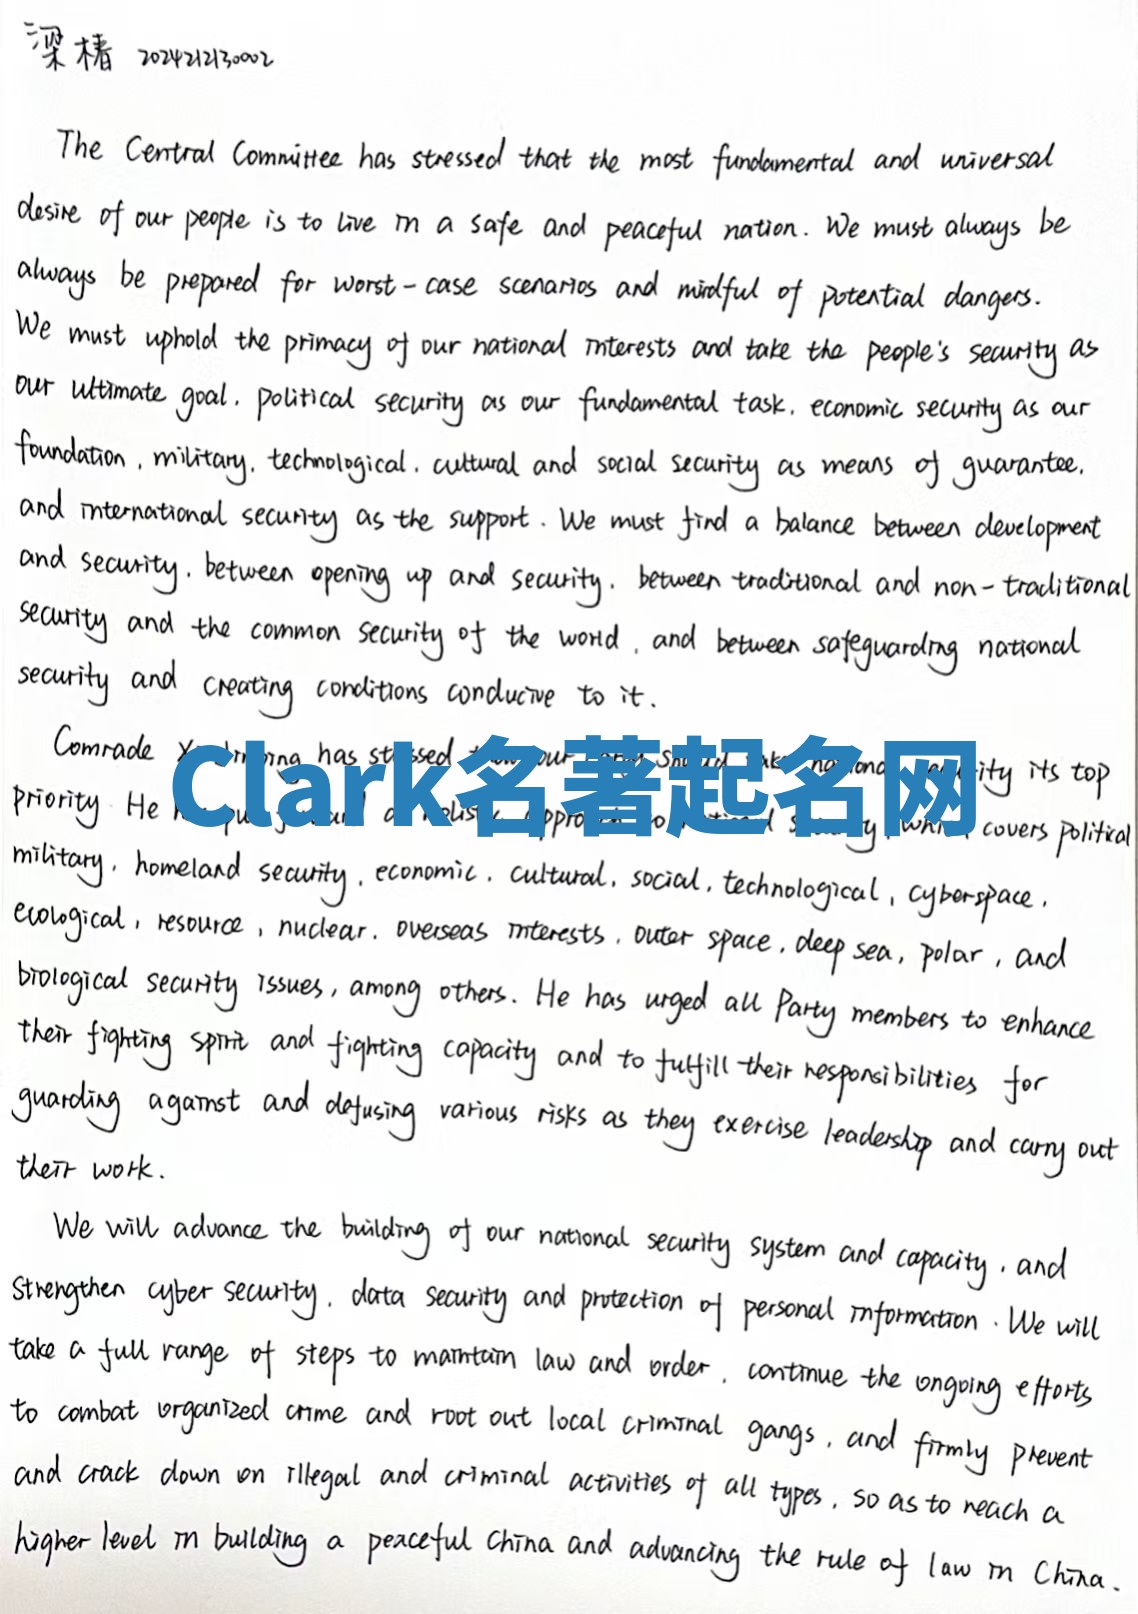 梁椿 2024212130002
The Central Committee has stressed that the most fundamental and universal
desire of our people is to live in a safe and peaceful nation. We must always be
always be prepared for worst-case scenarios and mindful of potential dangers.
We must uphold the primacy of our national interests and take the people's security as
our ultimate goal, political security as our fundamental task, economic security as our
foundation, military, technological, cultural and social security as means of guarantee,
and international security as the support. We must find a balance between development
and security, between opening up and security, between traditional and non-traditional
security and the common security of the world, and between safeguarding national
security and creating conditions conducive to it.
Comrade has stressed our its top
Clark名著起名网
priority He covers political
military, homeland security, economic, cultural, social, technological, cyberspace,
ecological, resource, nuclear, overseas interests, outer space, deep sea, polar, and
biological security issues, among others. He has urged all Party members to enhance
their fighting spirit and fighting capacity and to fulfill their responsibilities for
guarding against and defusing various risks as they exercise leadership and carry out
their work.
We will advance the building of our national security system and capacity, and
strengthen cyber security, data security and protection of personal information. We will
take a full range of steps to maintain law and order, continue the ongoing efforts
to combat organized crime and root out local criminal gangs, and firmly prevent
and crack down on illegal and criminal activities of all types, so as to reach a
higher level in building a peaceful China and advancing the rule of law in China.